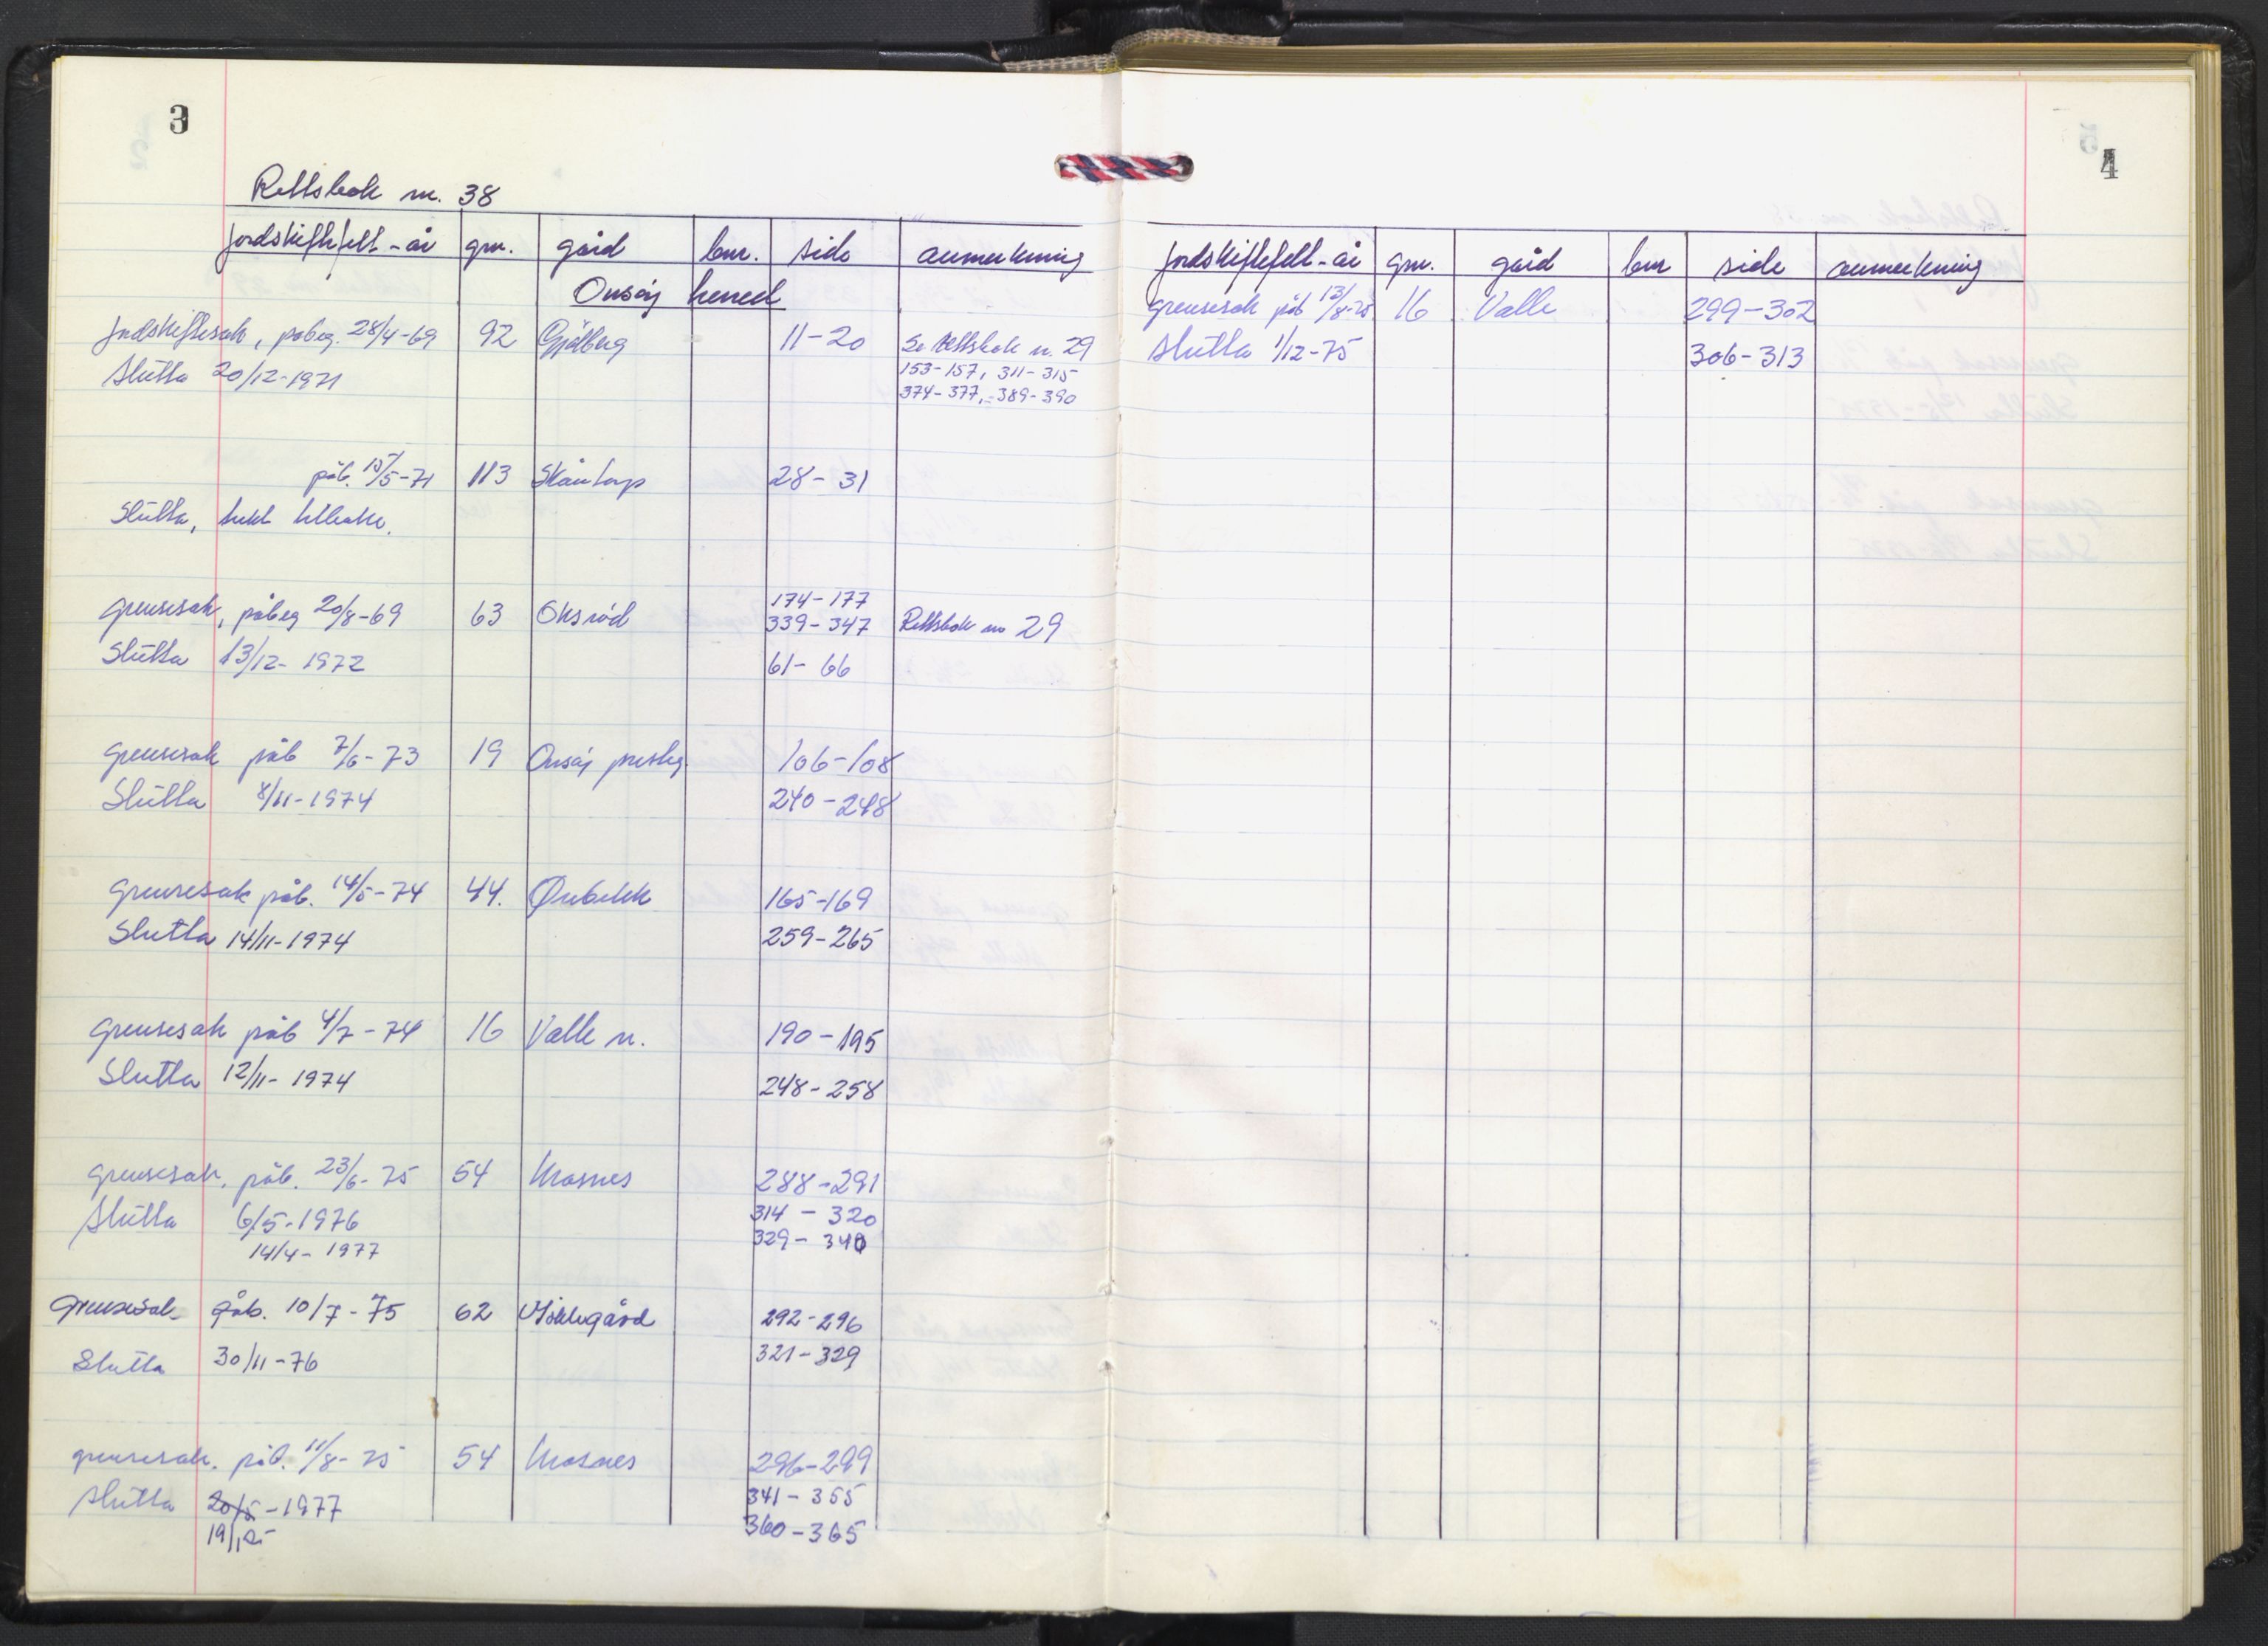 3
Rettsbok nr. 38
jordskiftefelt - år gnr. gård bnr. side anmerkning
Onsøy herred
Jordskiftesak, påbeg. 28/4-69 92 Gjølberg 11-20 Se rettsbok nr. 29
Slutta 20/12-1971 153-157, 311-315
374-377, 389-390
påb. 15/5-71 113 Skåntorp 28-31
Slutta,
grensesak, påbeg 20/8-69 63 Oksrød 174-177
339-347 Rettsbok nr 29
Slutta 13/12-1972 61-66
grensesak påb 7/6-73 19 Onsøy presteg. 106-108
Slutta 8/11-1974 240-248
grensesak påb. 14/5-74 44. Ørebekk 165-169
Slutta 14/11-1974 259-265
grensesak påb 4/7-74 16 Valle n. 190-195
Slutta 12/11-1974 248-258
grensesak, påb. 23/6-75 54 Mosnes 288-291
Slutta 6/5-1976 314-320
14/4-1977 329-340
Grensesak påb. 10/7-75 62 292-296
Slutta 30/11-76 321-329
grensesak, påb. 11/8-75 54 Mosnes 296-299
slutta 20/5-1977 341-355
360-365
4
jordskiftefelt - år gnr. gård bnr side anmerkning
grensesak påb 13/8-75 16 Valle 299-302
Slutta 1/12-75 306-313